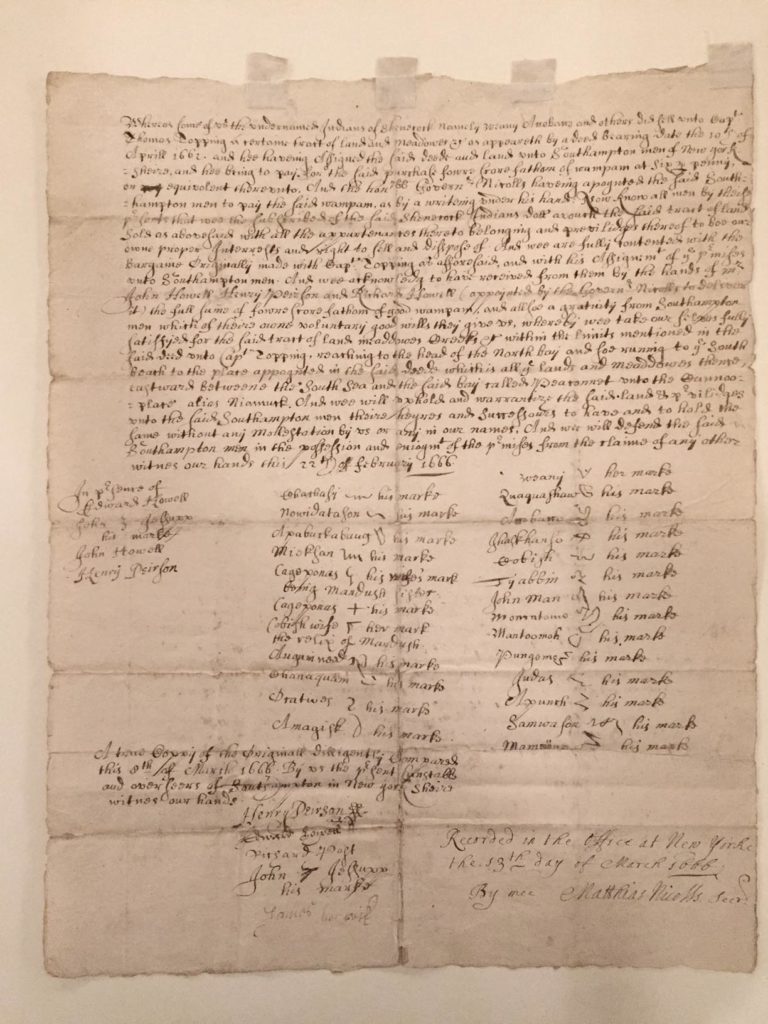 Whereas some of us the undernamed Indians of Shenecock Namely weany Anobans and others did sell unto Capt
Thomas Topping a certaine tract of land and Meadowes &c as appeareth by a deed bearing date the 10th of
Aprill 1662. and hee having Assigned the said deede and land unto Southampton men of New york
Sheire, and hee being to pay for the said purchase fowre score fathom of wampam at Six a penny,
or equivalent thereunto. And the honble Govern Nicolls having apoynted the said South-
hampton men to pay the said wampam, as by a writeing under his hand. Now know all men by these
psents that wee the subscribed of the said Shenecock Indians doe avouch the said tract of land
sold as abovesaid with all the appurtenances thereto belonging and previlidges thereof to bee our
owne proper Interrests and right to sell and dispose of And wee are fully contented with the
bargaine Originally made with Capt Topping as afforesaid, and with his Assignmt of ye pmises
unto Southampton men. And wee acknowledg to have received from them by the hands of mr
John Howell Henry Peirson and Richard Howell (appointed by the Govern Nicolls to deliver
it) the full sume of fowre score fathom of good wampam, and allsoe a gratuity from Southampton
men which of theire owne voluntary good wills they give us, whereby wee take our selves fully
satissfied for the said tract of land meadowes Creeks &c within the limits mentioned in the
said deed unto Capt Topping, reaching to the head of the North bay and soe runing to ye South
beach to the place appoynted in the said deede which is all ye lands and meaddowes thence
eastward betweene the South Sea and the said bay called Peaconnet unto the Cannoo-
place alies Niamuck. And wee will uphold and warrantize the said land & pvilidges
unto the said Southampton men theire heyres and Successours to have and to hold the
same without any Mollestation by us or any in our names. And wee will defend the said
Southampton men in the possession and enioymt of the pmises from the claime of any other
witnes our hands this 22th of february 1666
In psence of
Edward Howell
John Z Jessupp
his marke
John Howell
Henry Peirson
Cobatbaly his marke
Nowidatason his marke
Apabuckabaug his marke
Mickhan his marke
Cageponas his mark
being Mandush sister
Cageponas + his marke
Cobish wife her mark
the relix of Mandush
his marke
Chanaquam his marke
Oratwes his marke
Amagisk his marke
weany her marke
Quaquashaw his marke
his marke
his marke
Cobish his marke
Tjabbin his marke
John Man his marke
Momentowe his marke
Mantoomok his marke
Pungome his marke
Judas his marke
Apunck his marke
Samwason his marke
his marke
A true Coppy of the Originall dilligently Compared
this 8th of March 1666 By us the psent Constable
and overseers of Southampton in New york Sheire
witnes our hands
Henry Peirson
Edward Howell
Richard Post
John Z Jessupp
his marke
Recorded in the Office at New Yorke
the 13th day of March 1666
By mee Matthias Nicolls Secr